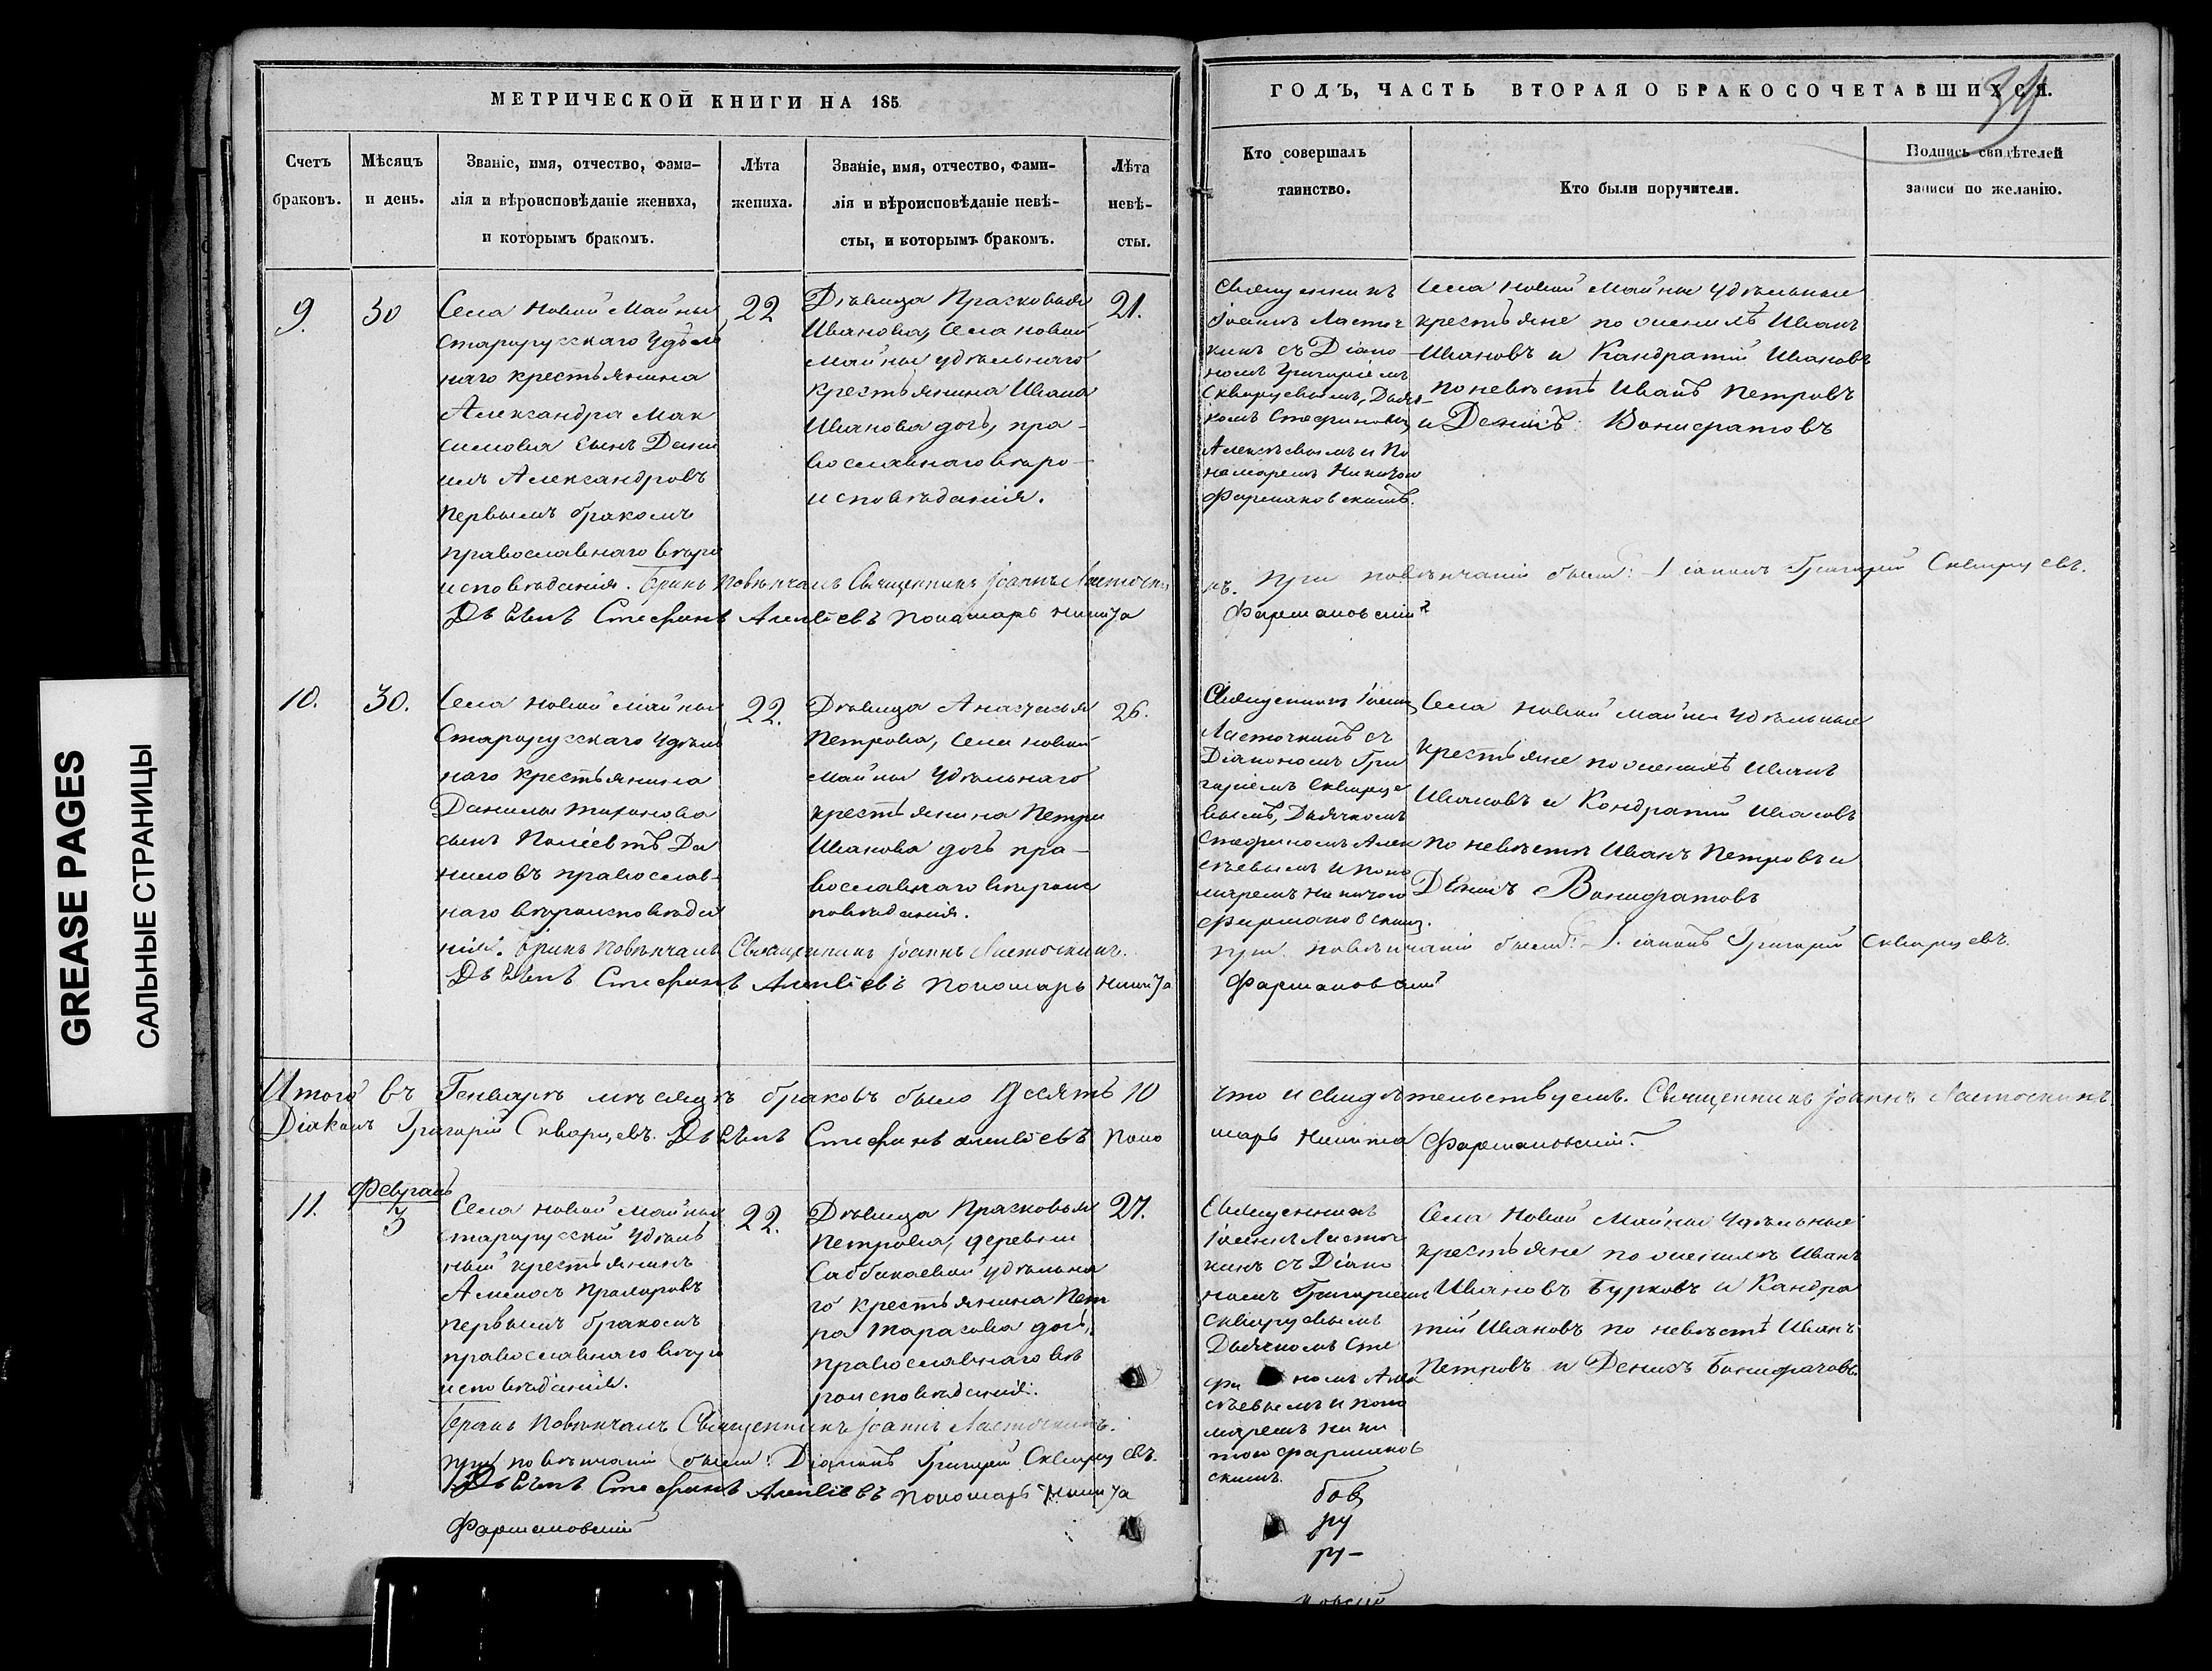 GREASE PAGES
САЛЬНЫЕ СТРАНИЦЫ
МЕТРИЧЕСКОЙ КНИГИ НА 185
Счетъ браковъ.
Мѣсяцъ и день.
Званіе, имя, отчество, фами-
лія и вѣроисповѣданіе жениха,
и которымъ бракомъ.
Лѣта жениха.
Званіе, имя, отчество, фами-
лія и вѣроисповѣданіе невѣ-
сты, и которымъ бракомъ.
Лѣта невѣ-
сты.
ГОДЪ, ЧАСТЬ ВТОРАЯ О БРАКОСОЧЕТАВШИХСЯ.
Кто совершалъ
таинство.
Кто были поручители.
Подпись свидѣтелей
записи по желанію.
9.
30
Села Новой Майны
старорусскаго Удѣль
наго крестьянина
Александра Мак
симова сынъ Дани
илъ Александровъ
первымъ бракомъ
православнаго вѣро
исповѣданія.
22
Дѣвица Прасковья
Иванова, Села новой
Майны удѣльнаго
крестьянина Ивана
Иванова дочь, пра-
вославнаго вѣро-
исповѣданія.
21.
Священникъ
Іоаннъ Ласточ
кинъ съ Діако
номъ Григоріемъ
Скворцевымъ, Дьяч-
комъ Стефаномъ
Алексѣевымъ и По
номаремъ Никитою
Фармаковскимъ.
Села Новой Майны удѣльные
крестьяне по женихѣ Иванъ
Ивановъ и Кандратій Ивановъ
по невѣстѣ Иванъ Петровъ
и Денисъ Вонифатовъ
Бракъ повѣнчалъ Священникъ Іоаннъ Ласточки
нъ. при повѣнчаніи были: Діаконъ Григорій Скворцевъ.
Дьячекъ Стефанъ Алексѣевъ пономарь Никита
Фармаковскій
10.
30.
Села Новой Майны
Старорусскаго Удѣль
наго крестьянина
Данилы
сынъ Да
ниловъ православ-
наго вѣроисповѣда
нія.
22.
Дѣвица
Петрова, Села новой
Майны Удѣльнаго
крестьянина Петра
Иванова дочь пра-
вославнаго вѣроис
повѣданія.
26.
Священникъ Іоаннъ
Ласточкинъ съ
Діакономъ Гри
горіемъ Скворце
вымъ, Дьячкомъ
Стефаномъ Алек
сѣевымъ и поно
маремъ Никитою
Фармаковским.
Села Новой Майны Удѣльные
крестьяне по женихѣ Иванъ
Ивановъ и Кондратій Ивановъ
по невѣстѣ Иванъ Петровъ и
Денисъ Вонифатовъ
Бракъ повѣнчалъ Священникъ Іоаннъ Ласточкинъ.
при повѣнчаніи были: Діаконъ Григорій Скворцевъ.
Дьячекъ Стефанъ Алексѣевъ пономарь Никита
Фармаковскій
Итого въ Генварѣ мѣсяцѣ браковъ было десять 10
что и свидѣтельствуемъ. Священникъ Іоаннъ Ласточкинъ
Діаконъ Григорій Скворцевъ. Дьячекъ Стефанъ Алексѣевъ поно
марь Никита Фармаковскій.
11.
Февраль
3
Села Новой Майны
старорусскій Удѣль
ный крестьянинъ
первымъ бракомъ
православнаго вѣро
исповѣданія.
22.
Дѣвица Прасковья
Петрова, деревни
Саббакаевой удѣльна
го крестьянина Пет
ра Тарасова дочь,
православнаго вѣ
роисповѣданія.
27.
Священникъ
Іоаннъ Ласточ
кинъ съ Діако
номъ Григоріемъ
Скворцевымъ
Дьячкомъ Сте
фа номъ Алек
сѣевымъ и поно
маремъ Ники
тою Фармаков
скимъ.
Села Новой Майны Удѣльные
крестьяне по женихѣ Иванъ
Ивановъ Бурковъ и Кандра
тій Ивановъ по невѣстѣ Иванъ
Петровъ и Денисъ
Бракъ повѣнчалъ Священникъ Іоаннъ Ласточкинъ.
при повѣнчаніи были: Діаконъ Григорій Скворцевъ.
Дьячекъ Стефанъ Алексѣевъ пономарь Никита
Фармаковскій